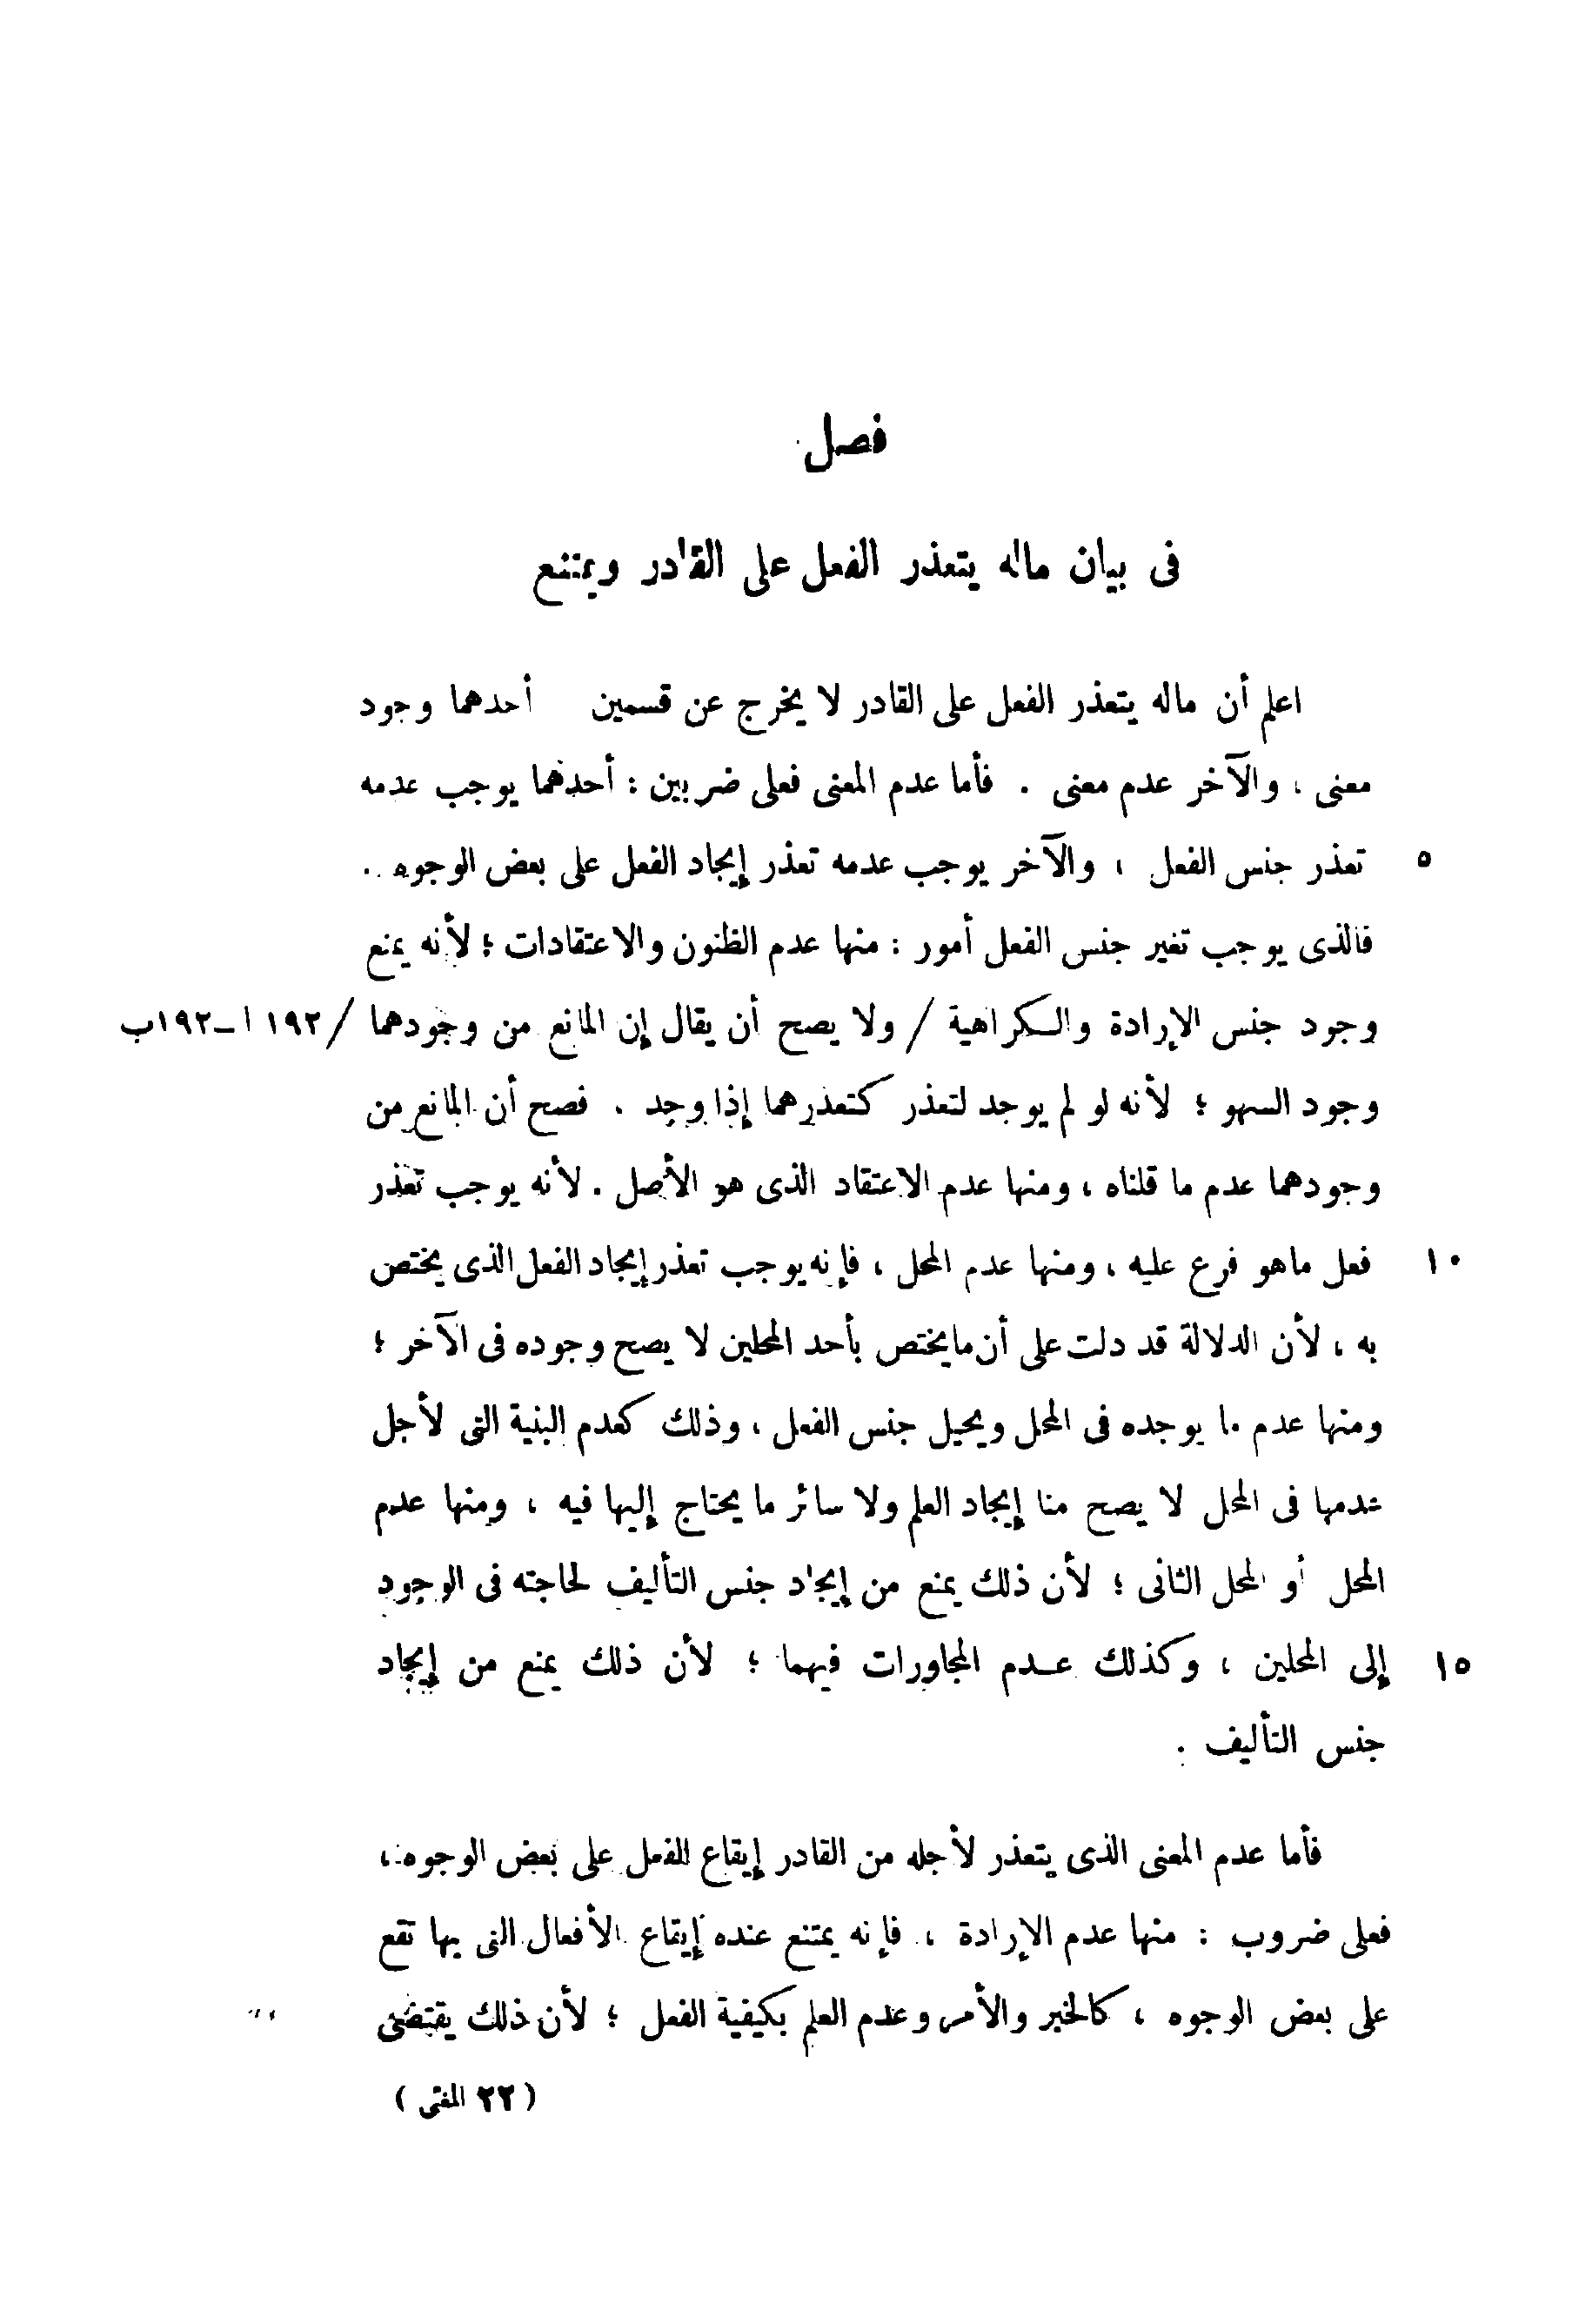 فصل
فى بيان ماله يتعذر الفعل على القادر ويمتنع
اعلم أن ماله يتعذر الفعل على القادر لا يخرج عن قسمين أحدهما وجود
معنى ، والآخر عدم معنى . فأما عدم المعنى فعلى ضربين : أحدهما يوجب عدمه
٥ تعذر جنس الفعل ، والآخر يوجب عدمه تعذر إيجاد الفعل على بعض الوجوه ..
فالذى يوجب تغير جنس الفعل أمور : منها عدم الظنون والاعتقادات ؛ لأنه يمنع
وجود جنس الإرادة والكراهية / ولا يصح أن يقال إن المانع من وجودهما / ١٩٢ ا ــ ١٩٢ب
وجود السهو ؛ لأنه لو لم يوجد لتعذر كتعذرهما إذا وجد . فصح أن المانع من
وجودهما عدم ما قلناه ، ومنها عدم الاعتقاد الذى هو الأصل . لأنه يوجب تعذر
١٠ فعل ماهو فرع عليه ، ومنها عدم المحل ، فإنه يوجب تعذر إيجاد الفعل الذى يختص
به ، لأن الدلالة قد دلت على أن مايختص بأحد المحلين لا يصح وجوده فى الآخر ؛
ومنها عدم ما يوجده فى المحل ويحيل جنس الفعل ، وذلك كعدم البنية التى لأجل
عدمها فى المحل لا يصح منا إيجاد العلم ولا سائر ما يحتاج إليها فيه ، ومنها عدم
المحل أو المحل الثانى ؛ لأن ذلك يمنع من إيجاد جنس التأليف لحاجته فى الوجود
١٥ إلى المحلين ، وكذلك عـدم المجاورات فيهما ؛ لأن ذلك يمنع من إيجاد
جنس التأليف .
فأما عدم المعنى الذى يتعذر لأجله من القادر إيقاع الفعل على بعض الوجوه ،
فعلى ضروب : منها عدم الإرادة ، فإنه يمتنع عنده إيقاع الأفعال التى بها تقع
على بعض الوجوه ، كالخبر والأمر وعدم العلم بكيفية الفعل ؛ لأن ذلك يقتضى
( ٢٢ المغنى )